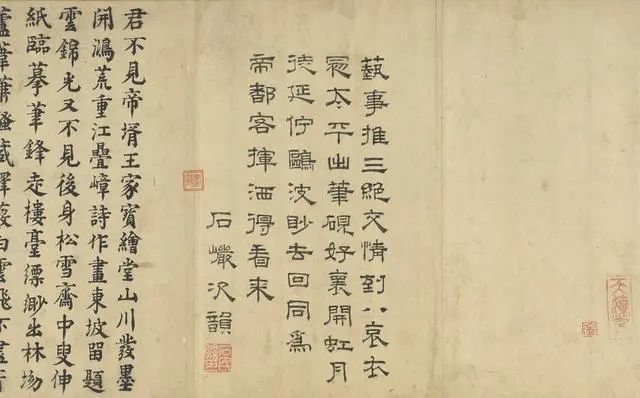 蓺事推三絕交情到八哀衣
冠太平出筆硯好襄開虹月
徒延佇鷗波眇去回同爲
帝都客揮洒得看來
石巖次韻
君不見帝壻王家寶繪堂山川發墨
開鴻荒重江疊嶂詩作畫東坡留題
雲錦光又不見後身松雪齋中叟伸
紙臨摹筆鋒走樓臺縹緲出林坳
蘆葦蕭騷藏澤藪白雲飛不盡